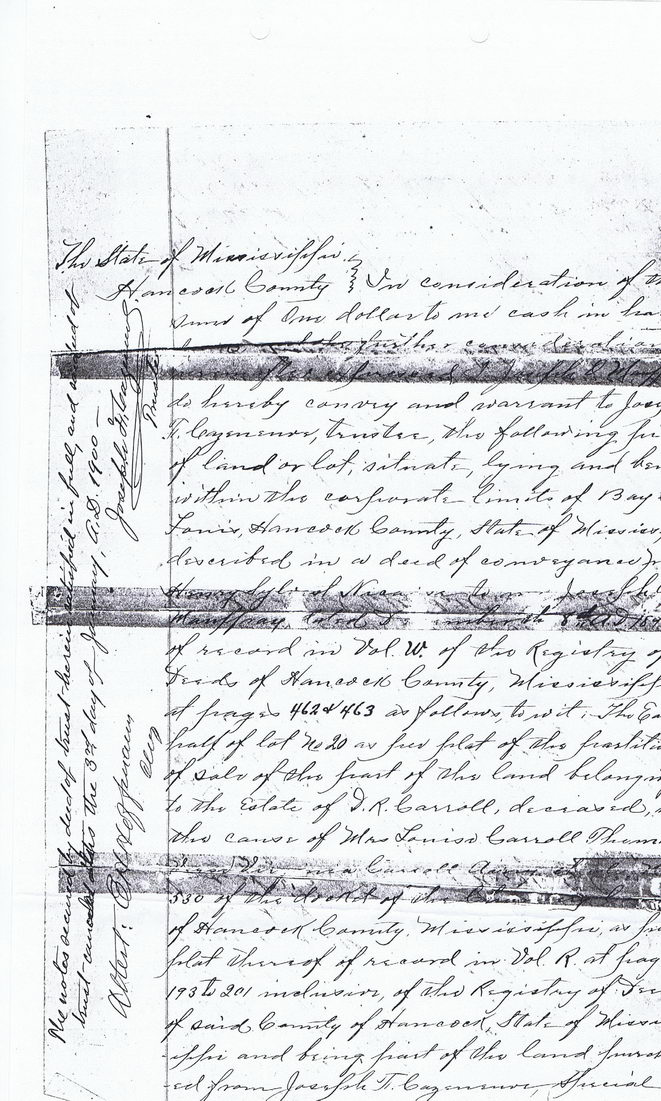 The State of Mississippi
Hancock County } In consideration of th
sum of One dollar to me cash in ha
the further consideration
hereinafter expressed I Joseph
do hereby convey and warrant to Jos
T. Cazeneuve, trustee, the following
of land or lot, situate, lying and be
within the corporate limits of Bay
Louis, Hancock County, State of Mississ
described in a deed of conveyance
Joseph
dated
of record in Vol. W. of the Registry of
Deeds of Hancock County, Mississipp
at pages 462 & 463 as follows, to wit: The Ea
half of lot No 20 as per plat of the partiti
of sale of the part of the land belongin
to the Estate of D. R. Carroll, deceased,
the cause of Mrs Louise Carroll Thom
Carroll
530 of the docket of the
of Hancock County, Mississippi, as p
plat thereof of record in Vol. R. at pag
193 to 201 inclusive, of the Registry of Dee
of said County of Hancock, State of Missi
-ippi and being part of the land purch
-ed from Joseph T. Cazeneuve, Special
The notes secured by deed of trust herein satisfied in full, and said deed of
trust canceled this the 3rd day of January, A.D. 1900 —
Joseph T. Cazeneuve
Trustee
Attest:
Clerk